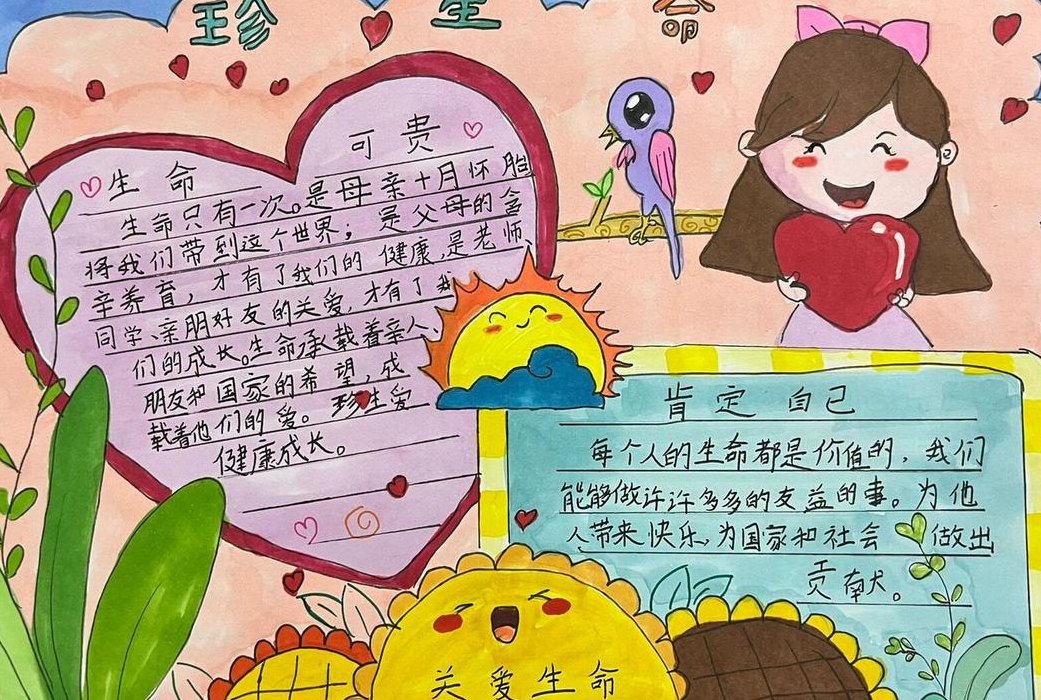 珍 命
生命 可贵
生命只有一次。是母亲十月怀胎
将我们带到这个世界；是父母的含
辛养育，才有了我们的健康，是老师、
同学、亲朋好友的关爱，才有了我
们的成长。生命承载着亲人、
朋友和国家的希望，成
载着他们的爱。珍生爱
健康成长。
肯定自己
每个人的生命都是价值的，我们
能够做许许多多的友益的事。为他
人带来快乐，为国家和社会做出
贡献。
关爱生命